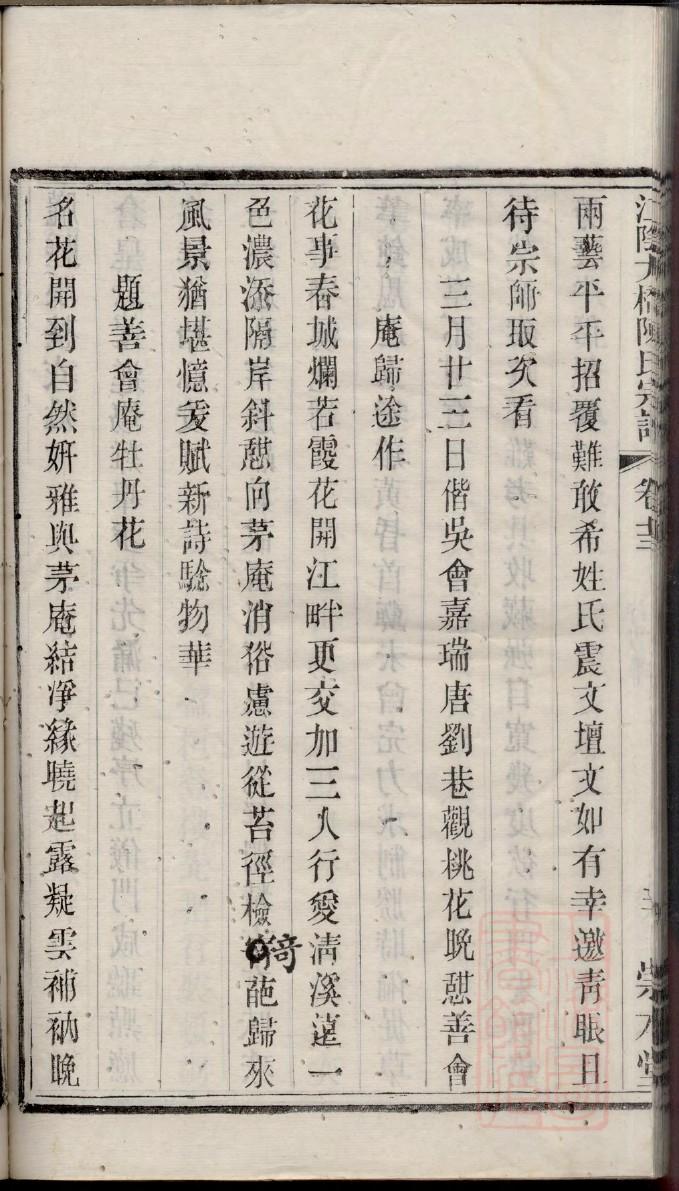 江陰 橋陳氏宗譜 卷
雨藝平平招覆難敢希姓氏震文壇文如有幸邀青眼且
待宗師取次看
三月廿三日偕吳會嘉瑞唐劉巷觀桃花晚憇善會
庵歸途作
花事春城爛若霞花開江畔更交加三人行愛清溪遠一
色濃添隔岸斜憇向茅庵消俗慮遊從苔徑檢 葩歸來
風景猶堪憶爰賦新詩騐物華
題善會庵牡丹花
名花開到自然妍雅與茅庵結淨緣曉起露凝雲補衲晚